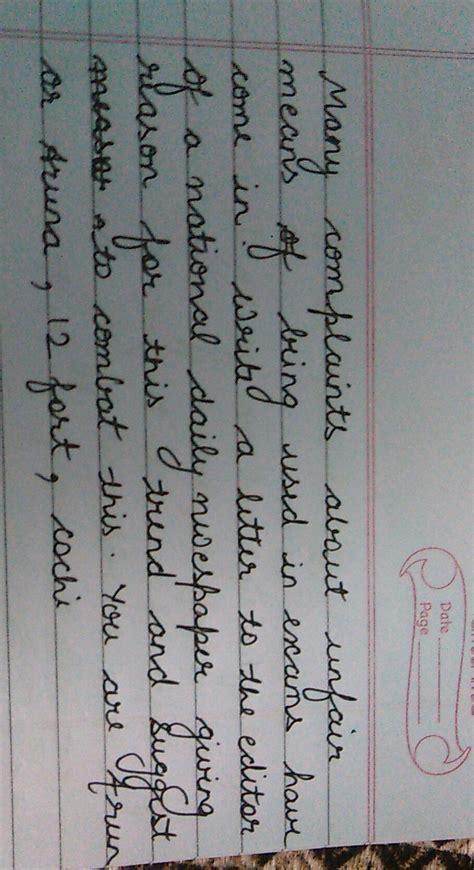 Date
Page
Many complaints about unfair
means of being used in exams have
come in. write a letter to the editor
of a national daily nwespaper giving
reason for this trend and suggest
to combat this. You are Arun
or Aruna, 12 fort, cochi